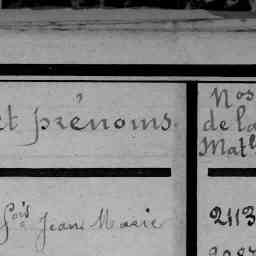 et prénoms.
Nos
de la
Matle
fois Jean Marie
2113